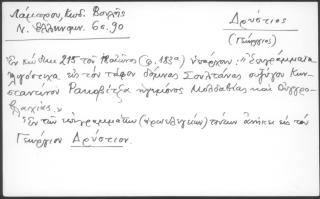 Λάμπρου, Κωδ. Βουλῆς
Ν. Ἑλληνομν. 6ος. 90
Δρύστιος
(Γεώργιος)
Ἐν κώδικι 215 τοῦ (φ. 183α) ὑπάρχουν: "ἐπιγράμματα
εἰς τὸν τάφον δόμνας Σουλτάνας συζύγου Κων-
σταντίνου Ρακοβίτζα ἡγεμόνος Μολδαβίας καὶ Οὐγγρο-
βλαχίας."
Ἐκ τῶν ἐπιγραμμάτων τούτων ἀνήκει εἰς τὸν
Γεώργιον Δρύστιον.